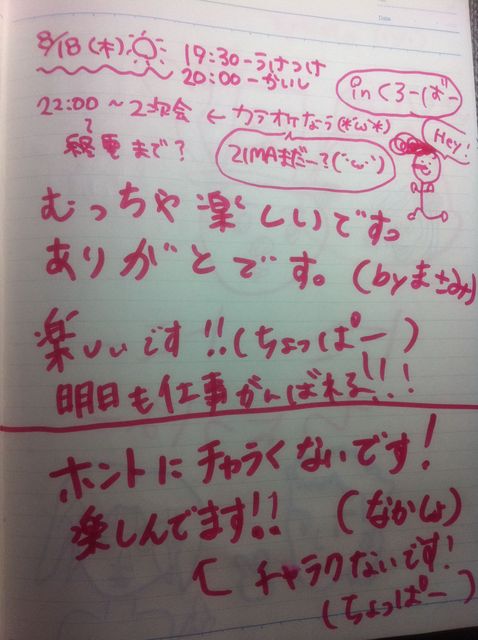 8/18(木) 19:30-うけつけ
20:00-かいし
in くろーばー
Hey!
22:00～2次会 ← カラオケなう(*´ω`*)
終電まで?
21MAまだー?(´・ω・`)
むっちゃ楽しいです。
ありがとです。(byまさみ)
楽しいです!!(ちょっぱー)
明日も仕事がんばれる!!!
ホントにチャラくないです!
楽しんでます!! (なかしょ)
チャラクないです!
(ちょっぱー)